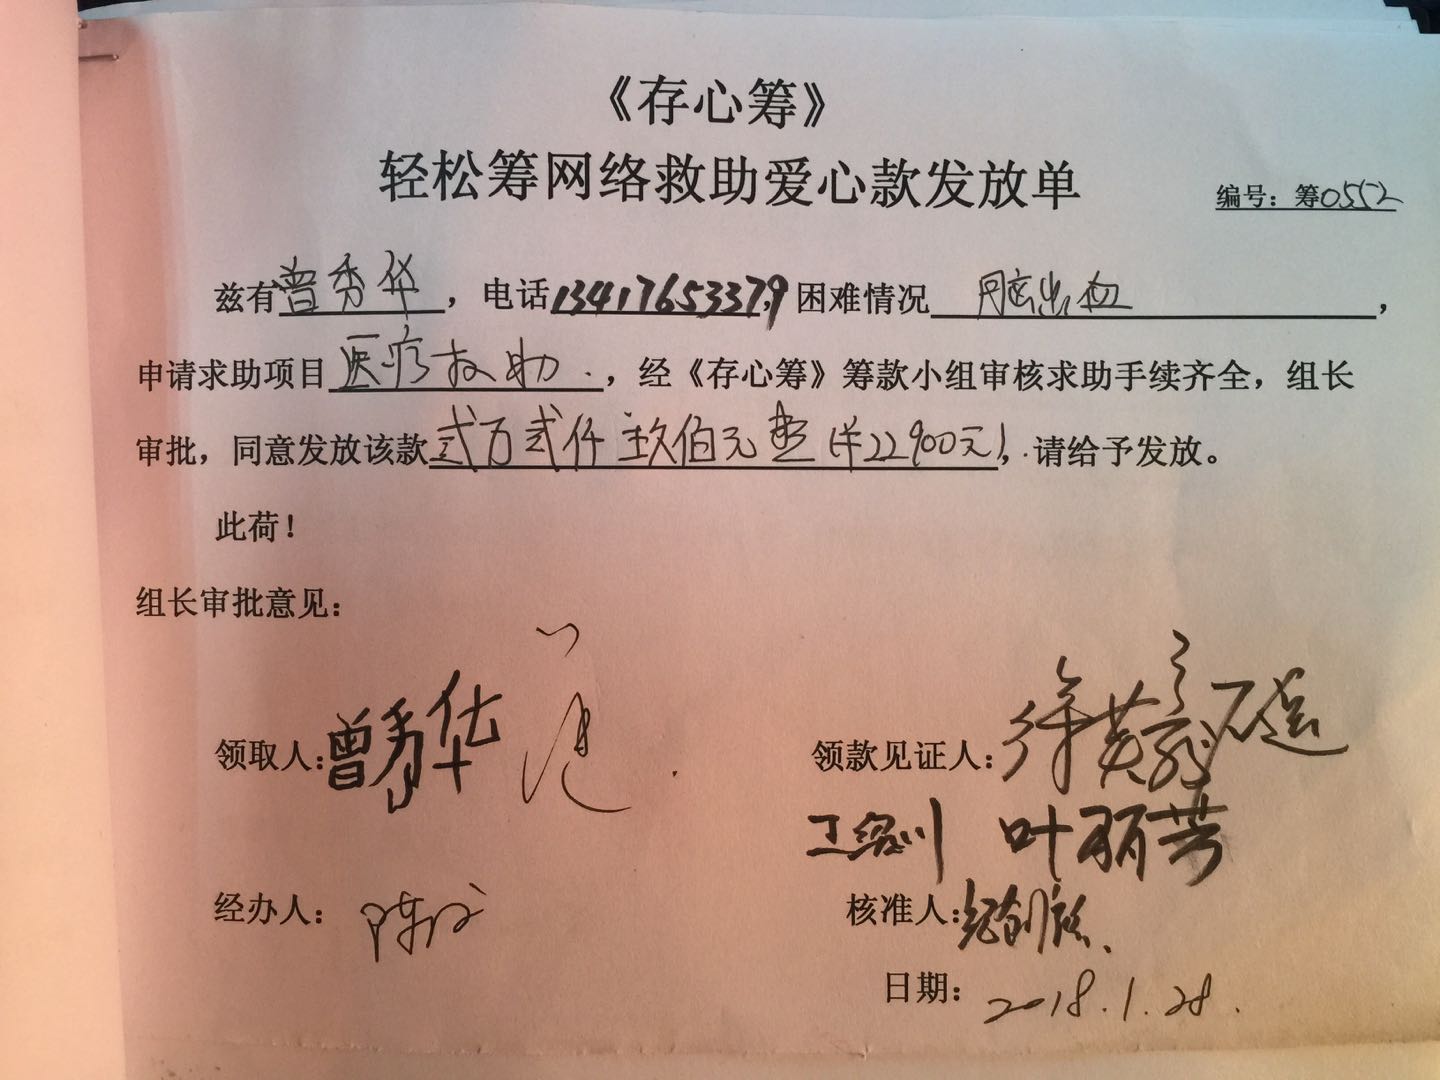 《存心筹》
轻松筹网络救助爱心款发放单
编号：筹0552
兹有曾秀华，电话13417653379，困难情况 脑出血，
申请求助项目医疗救助.，经《存心筹》筹款小组审核求助手续齐全，组长
审批，同意发放该款弍万弍仟玖佰元整(¥22900元)，请给予发放。
此荷！
组长审批意见：
领取人：曾秀华
领款见证人：徐英
叶丽芳
经办人：陈
核准人：
日期：2018.1.28.